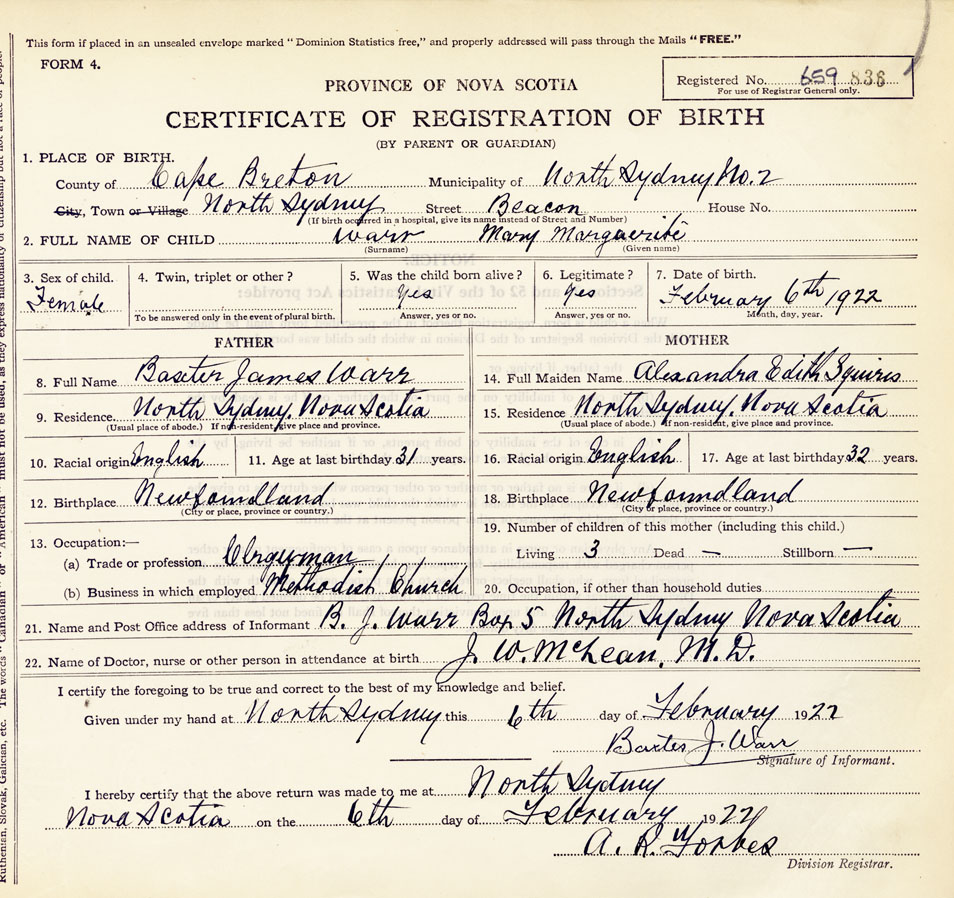 This form if placed in an unsealed envelope marked "Dominion Statistics free," and properly addressed will pass through the Mails "FREE."
FORM 4.
Registered No. 659 836
For use of Registrar General only.
PROVINCE OF NOVA SCOTIA
CERTIFICATE OF REGISTRATION OF BIRTH
(BY PARENT OR GUARDIAN)
1. PLACE OF BIRTH.
County of Cape Breton Municipality of North Sydney No. 2
City, Town or Village North Sydney Street Beacon House No.
(If birth occurred in a hospital, give its name instead of Street and Number)
2. FULL NAME OF CHILD Warr Mary Marguerite
(Surname) (Given name)
3. Sex of child. 4. Twin, triplet or other? 5. Was the child born alive? 6. Legitimate? 7. Date of birth.
Female Yes Yes February 6th 1922
To be answered only in the event of plural birth. Answer, yes or no. Answer, yes or no. Month, day, year.
FATHER MOTHER
8. Full Name Baxter James Warr 14. Full Maiden Name Alexandra Edith Squires
9. Residence North Sydney. Nova Scotia 15. Residence North Sydney. Nova Scotia
(Usual place of abode.) If non-resident, give place and province. (Usual place of abode.) If non-resident, give place and province.
10. Racial origin English 11. Age at last birthday 31 years. 16. Racial origin English 17. Age at last birthday 32 years.
12. Birthplace Newfoundland 18. Birthplace Newfoundland
(City or place, province or country.) (City or place, province or country.)
19. Number of children of this mother (including this child.)
13. Occupation:—
(a) Trade or profession Clergyman Living 3 Dead — Stillborn —
(b) Business in which employed Methodist Church 20. Occupation, if other than household duties
21. Name and Post Office address of Informant B. J. Warr Box 5 North Sydney Nova Scotia
22. Name of Doctor, nurse or other person in attendance at birth J. W. McLean, M.D.
I certify the foregoing to be true and correct to the best of my knowledge and belief.
Given under my hand at North Sydney this 6th day of February 1922
Baxter J. Warr
Signature of Informant.
I hereby certify that the above return was made to me at North Sydney
Nova Scotia on the 6th day of February 1922
A. R. Forbes
Division Registrar.
Ruthenian, Slovak, Galician, etc. The words "Canadian" or "American" must not be used, as they express nationality or citizenship but not a race of people.